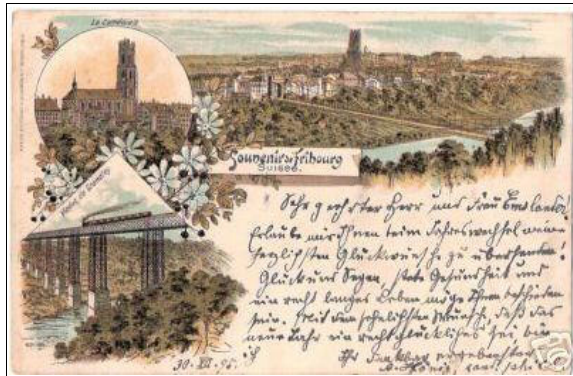 La Cathédrale
Souvenir de Fribourg
Suisse.
Viaduc de Grandfey
Sehr geehrter Herr und Frau
Erlaube mir Ihnen beim Jahreswechsel meine
herzlichsten Glückwünsche zu übersenden!
Glück und Segen, stete Gesundheit und
ein recht langes Leben möge Ihnen beschieden
sein. Mit dem Wunsche, daß das
neue Jahr ein recht glückliches sei bin
ich Ihr dankbar ergebenster
30. XII. 97.